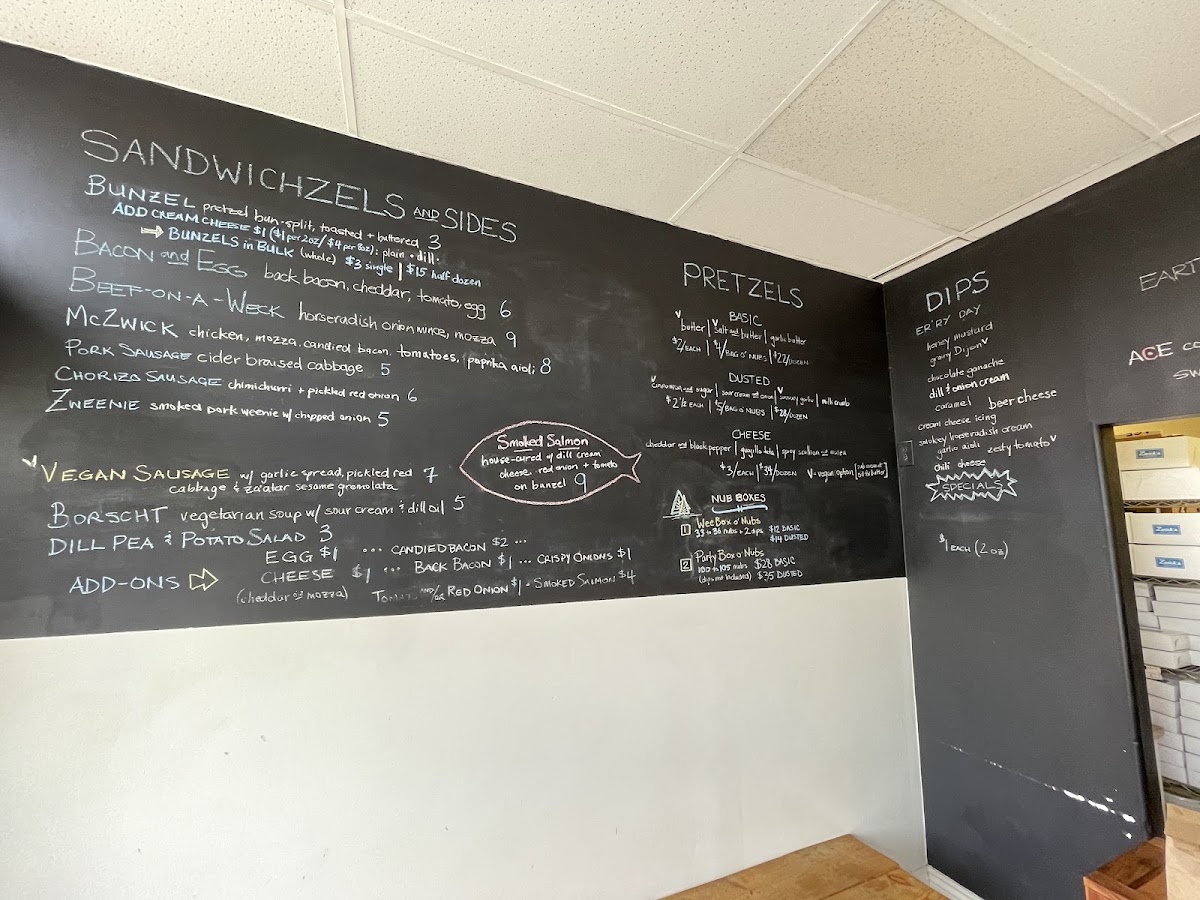 SANDWICHZELS AND SIDES
BUNZEL pretzel bun-split, toasted + buttered 3
ADD CREAM CHEESE $1 ($1 per 2oz/$4 per 8oz): plain • dill •
BUNZELS in BULK (whole) $3 single | $15 half dozen
BACON and EGG back bacon, cheddar, tomato, egg 6
BEEF-ON-A-WECK horseradish onion mince, mozza 9
MCZWICK chicken, mozza, candied bacon, tomatoes, paprika aioli 8
PORK SAUSAGE cider braised cabbage 5
CHORIZO SAUSAGE chimichurri + pickled red onion 6
ZWEENIE smoked pork weenie w/ chopped onion 5
V VEGAN SAUSAGE w/ garlic spread, pickled red 7
cabbage & za'atar sesame gremolata
BORSCHT vegetarian soup w/ sour cream & dill oil 5
DILL PEA & POTATO SALAD 3
ADD-ONS
EGG $1 ... CANDIED BACON $2 ...
CHEESE $1 ... BACK BACON $1 ... CRISPY ONIONS $1
(cheddar or mozza) TOMATO AND/OR RED ONION $1 - SMOKED SALMON $4
Smoked Salmon
house-cured w/ dill cream
cheese, red onion + tomato
on bunzel 9
PRETZELS
BASIC
V butter | V salt and butter | garlic butter
$2/EACH | $4/BAG O' NUBS | $22/DOZEN
DUSTED
V cinnamon and sugar | sour cream and onion | V savoury garlic | milk crumb
$2 1/2 EACH | $5/BAG O' NUBS | $28/DOZEN
CHEESE
cheddar and black pepper | spicy scallion
$3/EACH | $39/DOZEN V-vegan option
NUB BOXES
1 Wee Box o' Nubs
33 to 36 nubs + 2 dips $12 BASIC
$14 DUSTED
2 Party Box o' Nubs
100 to 105 nubs $28 BASIC
(dips not included) $35 DUSTED
DIPS
ER'RY DAY
honey mustard
grainy Dijon V
chocolate ganache
dill & onion cream
caramel beer cheese
cream cheese icing
smokey horseradish cream
garlic aioli zesty tomato V
chili cheese
SPECIALS
$1 EACH (2oz)
EART
ACE CO
SW